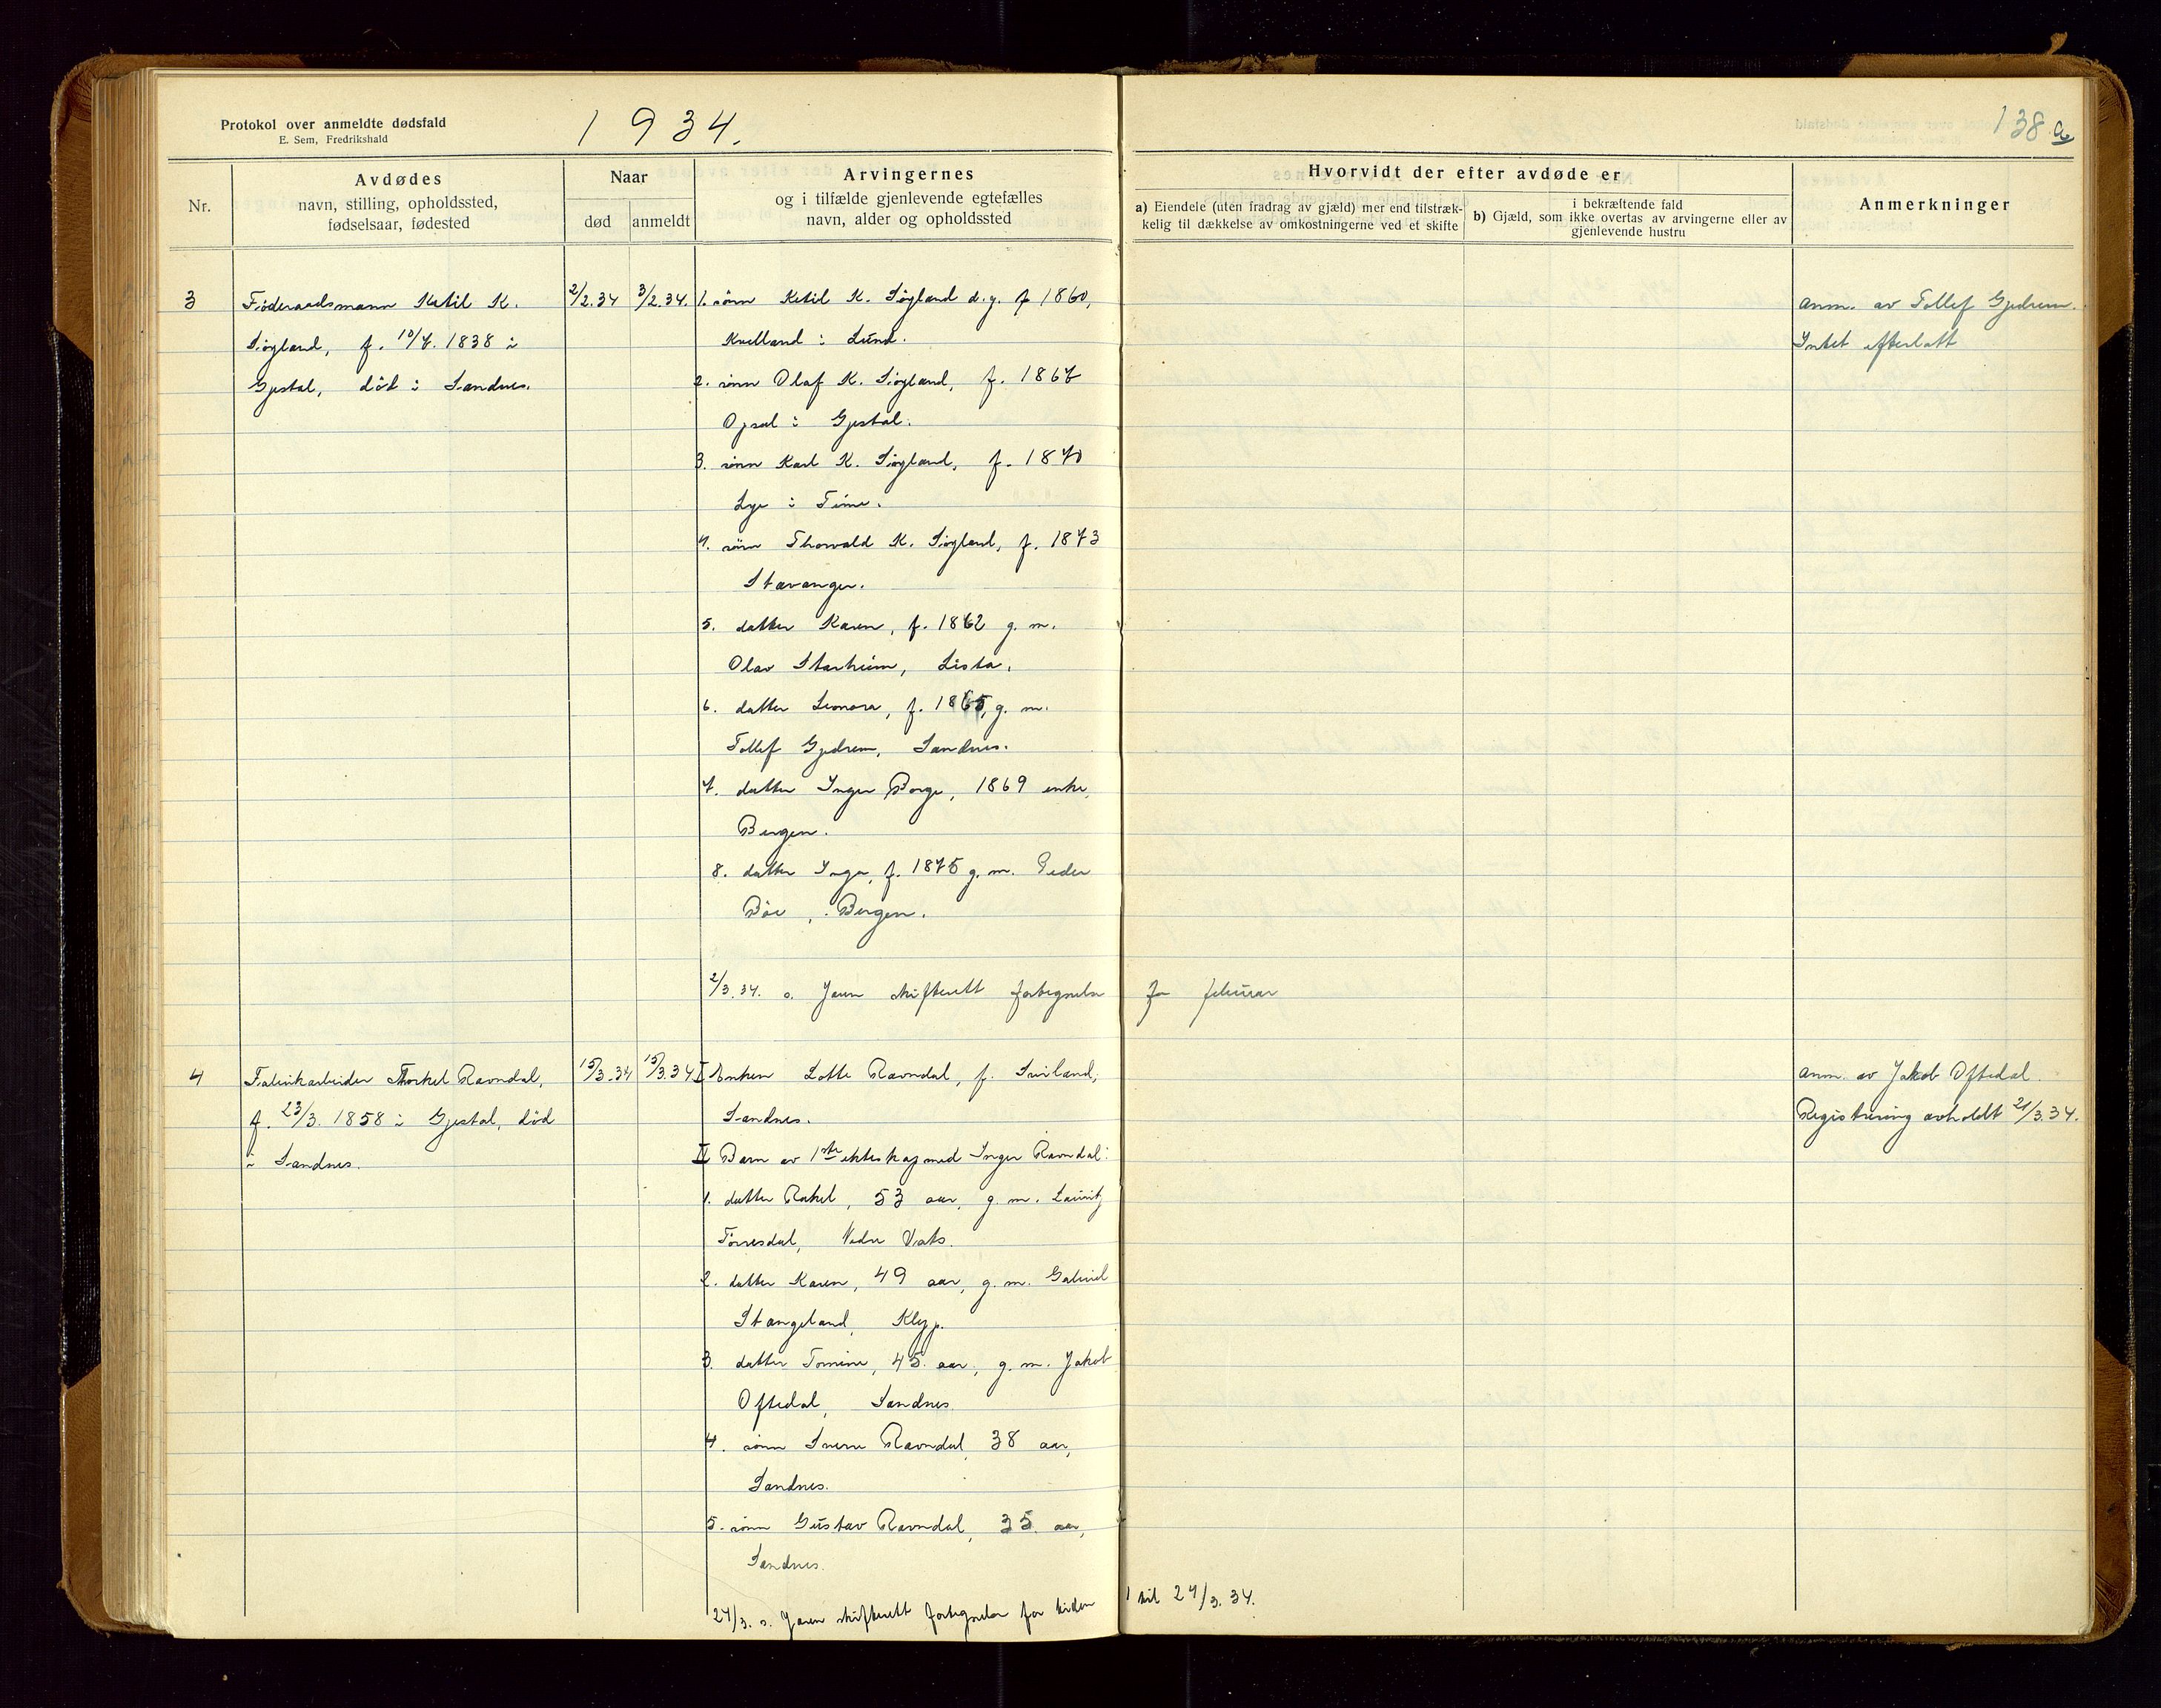 Protokol over anmeldte dødsfald
E. Sem, Fredrikshald
1934.
138 a
Nr.
Avdødes
navn, stilling, opholdssted,
fødselsaar, fødested
Naar
død
anmeldt
Arvingernes
og i tilfælde gjenlevende egtefælles
navn, alder og opholdssted
Hvorvidt der efter avdøde er
a) Eiendele (uten fradrag av gjæld) mer end tilstræk-
kelig til dækkelse av omkostningerne ved et skifte
i bekræftende fald
b) Gjæld, som ikke overtas av arvingerne eller av
gjenlevende hustru
Anmerkninger
3
Føderaadsmann Ketil K.
Søyland, f. 10/7. 1838 i
Gjestal, död i Sandnes.
2/2.34
3/2.34.
1. sönn Ketil K. Søyland d.y. f 1860,
Kvelland i Lund.
2. sönn Olaf K. Søyland, f. 1867
Opsal i Gjestal.
3. sönn Karl K. Søyland, f. 1870
Lye i Time.
4. sönn Thorvald K. Søyland, f. 1873
Stavanger.
5. datter Karen, f. 1862 g. m.
Olav Starheim, Lista.
6. datter Leonora, f. 1865, g. m.
Tollef Gjedrem, Sandnes.
7. datter Inger Borge, 1869 enke,
Bergen.
8. datter Inga, f. 1875 g. m. Peder
Böe, Bergen.
anm. av Tollef Gjedrem.
Intet efterlatt
2/3.34. s. Jæren skifterett fortegnelse for februar
4
Fabrikarbeider Thorkel Ravndal,
f. 23/3. 1858 i Gjestal, död
i Sandnes.
15/3.34
15/3.34
I Enken Lotte Ravndal, f. Sviland,
Sandnes.
II Barn av 1ste ekteskap med Inger Ravndal:
1. datter Rakel, 53 aar, g. m. Lauritz
Törresdal, Nedre Vats.
2. datter Karen, 49 aar, g. m. Gabriel
Stangeland, Klepp.
3. datter Tomine, 45 aar, g. m. Jakob
Oftedal, Sandnes
4. sönn Sverre Ravndal, 38 aar,
Sandnes.
5. sönn Gustav Ravndal, 35 aar,
Sandnes.
anm. av Jakob Oftedal.
Registrering avholdt 21/3.34.
24/3. s. Jæren skifterett fortegnelse for tiden 1 til 24/3. 34.